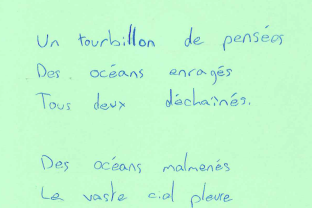 Un tourbillon de pensées
Des océans enragés
Tous deux déchaînés.
Des océans malmenés
Le vaste ciel pleure